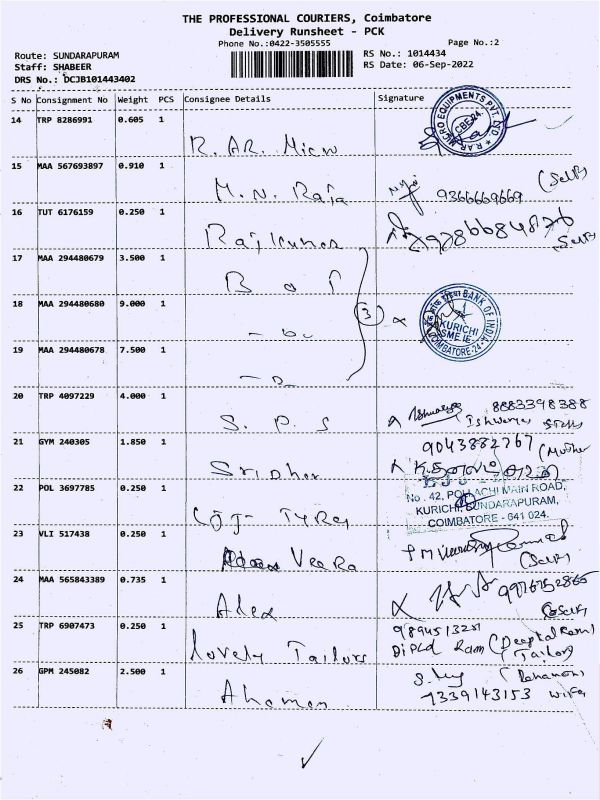 THE PROFESSIONAL COURIERS, Coimbatore
Delivery Runsheet - PCK
Phone No.:0422-3505555
Page No.:2
Route: SUNDARAPURAM
RS No.: 1014434
Staff: SHABEER
RS Date: 06-Sep-2022
DRS No.: DCJB101443402
S No Consignment No Weight PCS Consignee Details Signature
14 TRP 8286991 0.605 1 R. AR. Micro
R.AR MICRO EQUIPMENTS PVT. LTD. CBE-24.
15 MAA 567693897 0.910 1 M. N. Raja
9366669669 (Self)
16 TUT 6176159 0.250 1 Rajkumar
Self
17 MAA 294480679 3.500 1 B o I
18 MAA 294480680 9.000 1 - Do -
3
BANK OF INDIA KURICHI SME IE. COIMBATORE-24
19 MAA 294480678 7.500 1 - D -
20 TRP 4097229 4.000 1 S. P. S
8883398388
Ishwarya
21 GYM 240305 1.850 1 Sridhar
9043882767 (Mother
22 POL 3697785 0.250 1 Tyres
No. 42, POLLACHI MAIN ROAD,
KURICHI, SUNDARAPURAM,
COIMBATORE - 641 024.
23 VLI 517438 0.250 1 Veera
(Self)
24 MAA 565843389 0.735 1 Alex
9976752865
(Self)
25 TRP 6907473 0.250 1 lovely Tailors
9894513251
Dipld Ram (Deepak Ram)
Tailor)
26 GPM 245082 2.500 1
(Rahaman
7339143153 wife